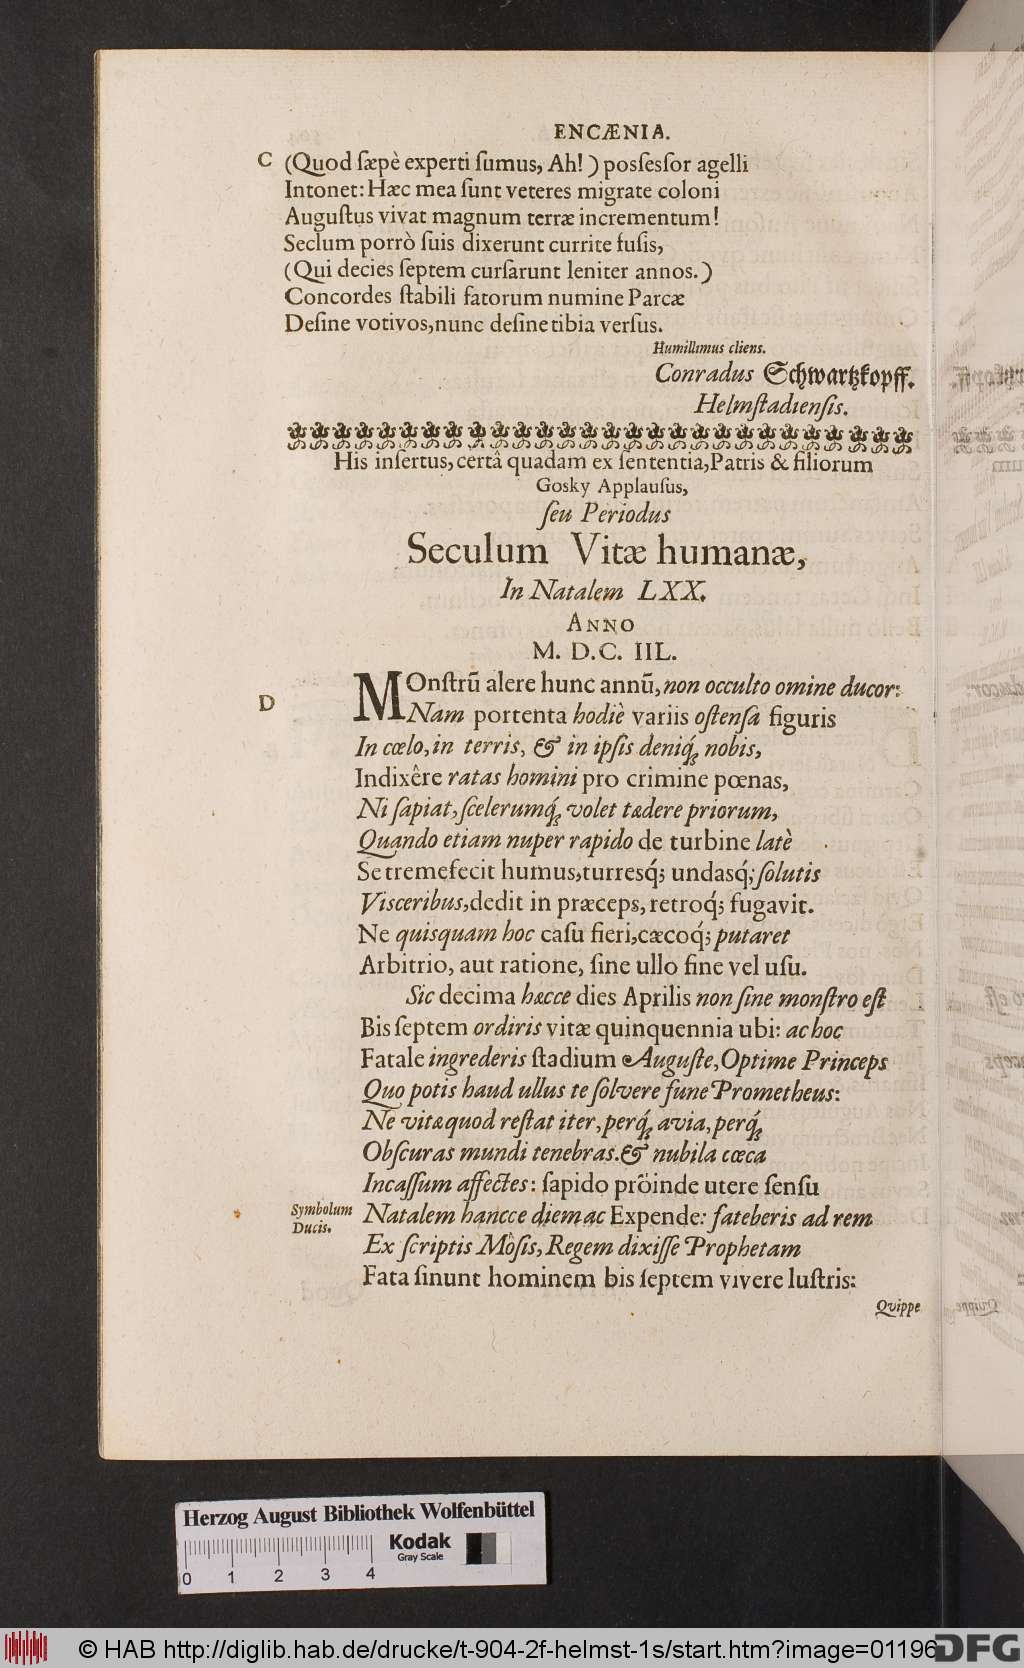 ENCÆNIA.
C (Quod ſæpè experti ſumus, Ah!) poſſeſſor agelli
Intonet: Hæc mea ſunt veteres migrate coloni
Auguſtus vivat magnum terræ incrementum!
Seclum porrò ſuis dixerunt currite fuſis,
(Qui decies ſeptem curſarunt leniter annos.)
Concordes ſtabili fatorum numine Parcæ
Deſine votivos, nunc deſine tibia verſus.
Humillimus cliens.
Conradus Schwartzkopff.
Helmſtadienſis.
His inſertus, certâ quadam ex ſententia, Patris & filiorum
Gosky Applauſus,
ſeu Periodus
Seculum Vitæ humanæ,
In Natalem LXX.
ANNO
M. D.C. IIL.
D MOnſtrũ alere hunc annũ, non occulto omine ducor:
Nam portenta hodiè variis oſtenſa figuris
In cœlo, in terris, & in ipſis deniq́; nobis,
Indixêre ratas homini pro crimine pœnas,
Ni ſapiat, ſcelerumq́; volet tædere priorum,
Quando etiam nuper rapido de turbine latè
Se tremefecit humus, turresq́; undasq́; ſolutis
Viſceribus, dedit in præceps, retroq́; fugavit.
Ne quisquam hoc caſu fieri, cæcoq́; putaret
Arbitrio, aut ratione, ſine ullo fine vel uſu.
Sic decima hæcce dies Aprilis non ſine monſtro eſt
Bis ſeptem ordiris vitæ quinquennia ubi: ac hoc
Fatale ingrederis ſtadium Auguſte, Optime Princeps
Quo potis haud ullus te ſolvere fune Prometheus:
Ne vitæ quod reſtat iter, perq́; avia, perq́;
Obſcuras mundi tenebras. & nubila cœca
Incaſſum affectes: ſapido prôinde utere ſenſu
Symbolum Ducis.
Natalem hancce diem ac Expende: fateberis ad rem
Ex ſcriptis Mòſis, Regem dixiſſe Prophetam
Fata ſinunt hominem bis ſeptem vivere luſtris:
Qvippe
Herzog August Bibliothek Wolfenbüttel
Kodak
Gray Scale
0 1 2 3 4
© HAB http://diglib.hab.de/drucke/t-904-2f-helmst-1s/start.htm?image=01196
DFG